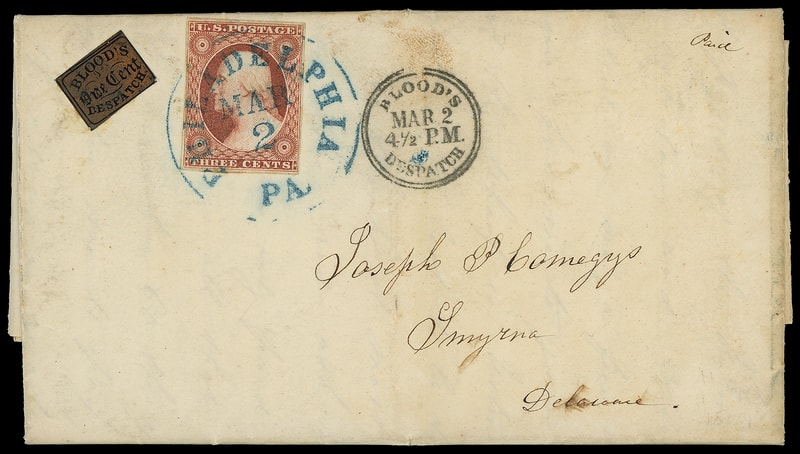 BLOOD'S
One Cent
DESPATCH
U.S. POSTAGE
THREE CENTS
PHILADELPHIA
MAR
2
PA
BLOOD'S
MAR 2
4½ P.M.
DESPATCH
Paid
Joseph P Comegys
Smyrna
Delaware.